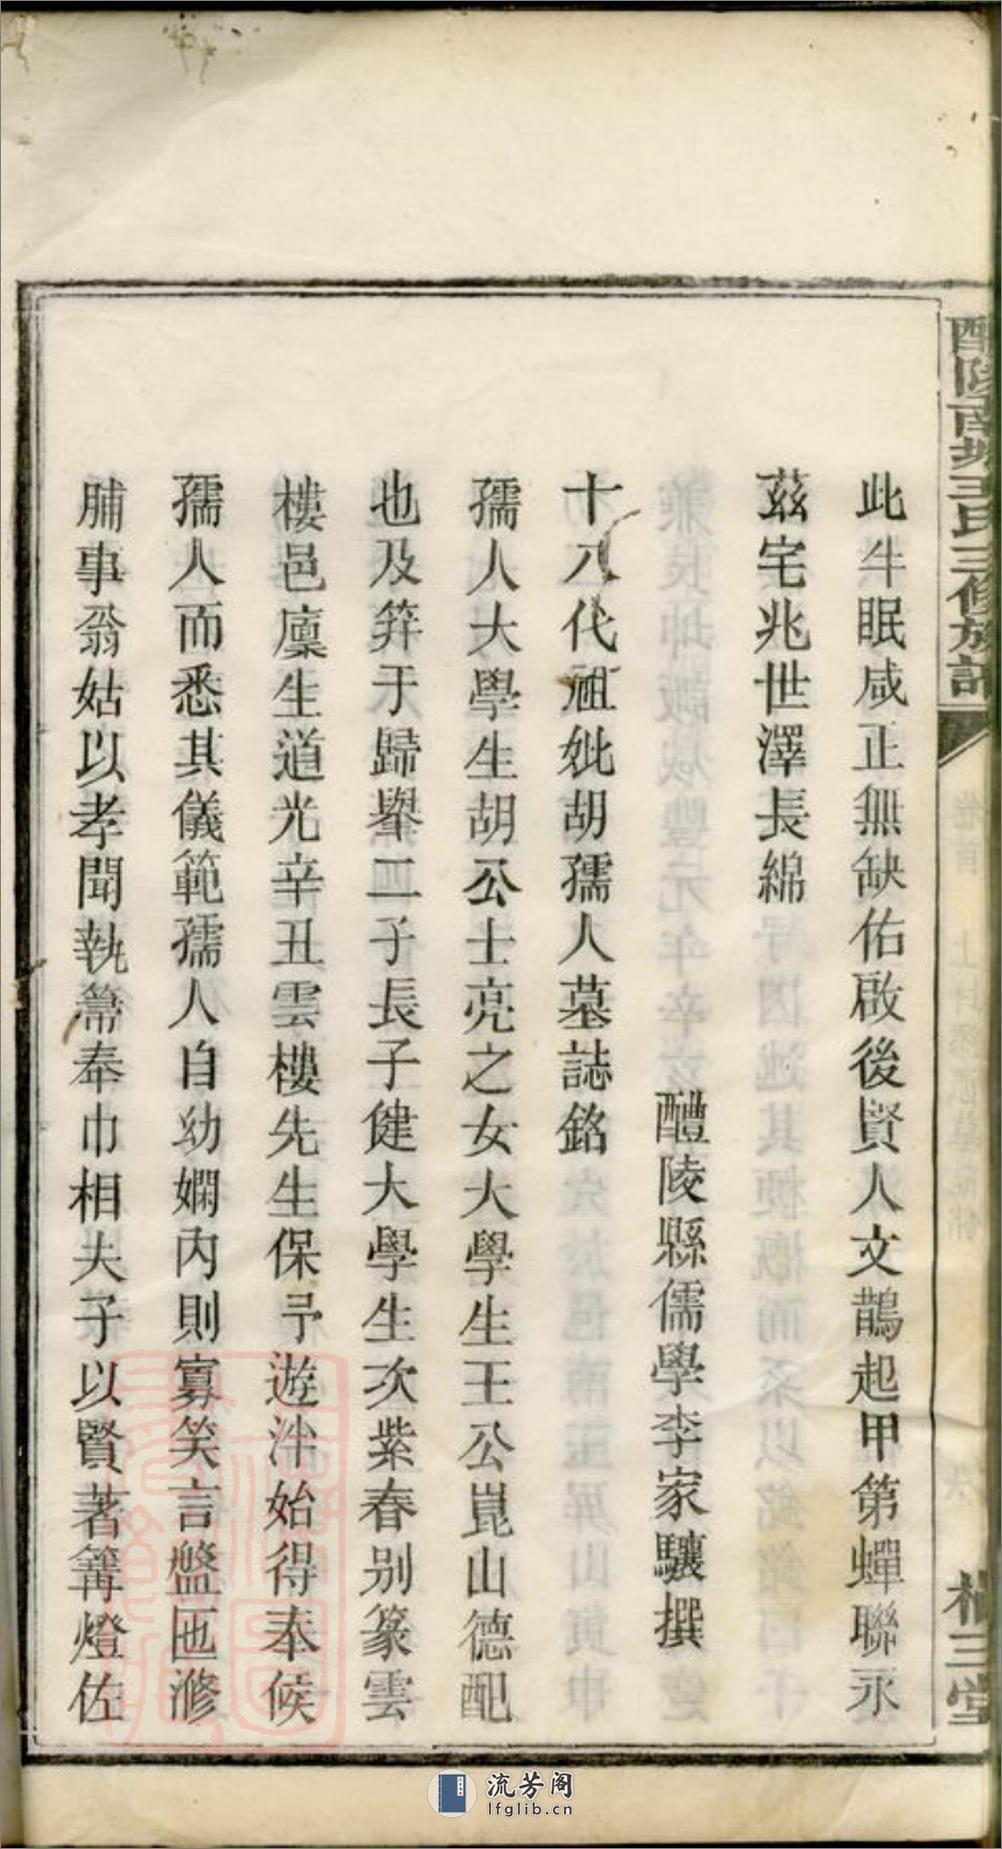 醴陵南城王氏三修族譜
卷首
槐三堂
此牛眠咸正無缺佑啟後賢人文鵲起甲第蟬聯永
茲宅兆世澤長綿
醴陵縣儒學李家驤撰
十八代祖妣胡孺人墓誌銘
孺人大學生胡公士亮之女大學生王公崑山德配
也及筓于歸舉二子長子健大學生次紫春别篆雲
樓邑廩生道光辛丑雲樓先生保予遊泮始得奉候
孺人而悉其儀範孺人自幼嫻内則寡笑言盤匜滫
脯事翁姑以孝聞執箒奉巾相夫子以賢著篝燈佐
流芳阁
lfglib.cn